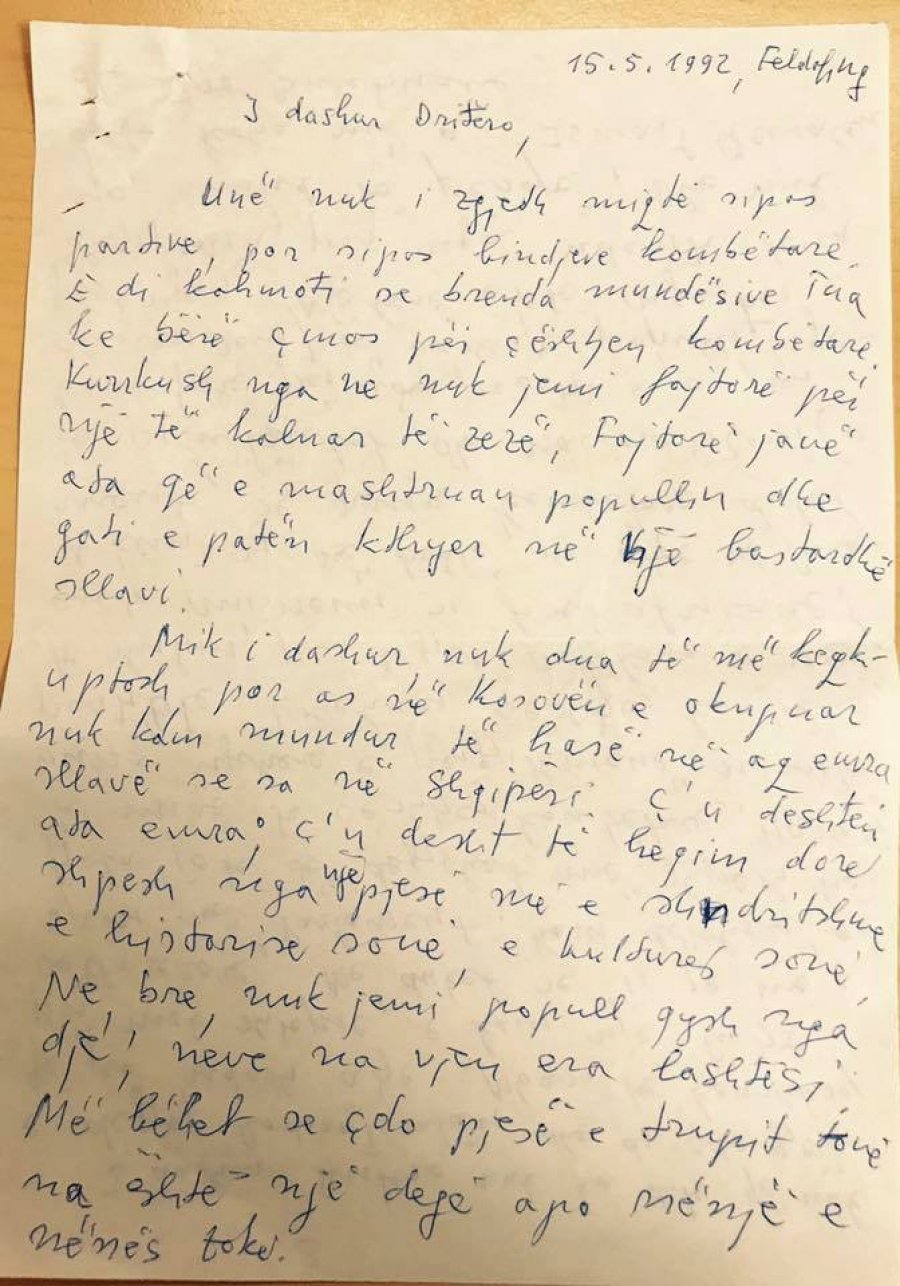 15.5.1992, Feldafing
I dashur Dritëro,
Unë nuk i zgjedh miqtë sipas
partive, por sipas bindjeve kombëtare.
E di kahmoti se brenda mundësive Tua
ke bërë çmos për çështjen kombëtare.
Kurrkush nga ne nuk jemi fajtorë për
një të kaluar të zezë, Fajtorë janë
ata që e mashtruan popullin dhe
gati e patën kthyer në një bastardhë
sllavi.
Mik i dashur, nuk dua të më keqk-
uptosh por as në Kosovën e okupuar
nuk kam mundur të hasë në aq emra
sllavë se sa në Shqipëri. Ç'u deshtën
ata emra, ç'u desht të heqim dorë
shpesh nga një pjesë më e shndritshme
e historisë sonë, e kulturës sonë,
Ne, bre, nuk jemi popull qysh nga
dje, neve na vjen era lashtësi.
Më bëhet se çdo pjesë e trupit tonë
na është një degë apo rrënjë e
nënës tokë.